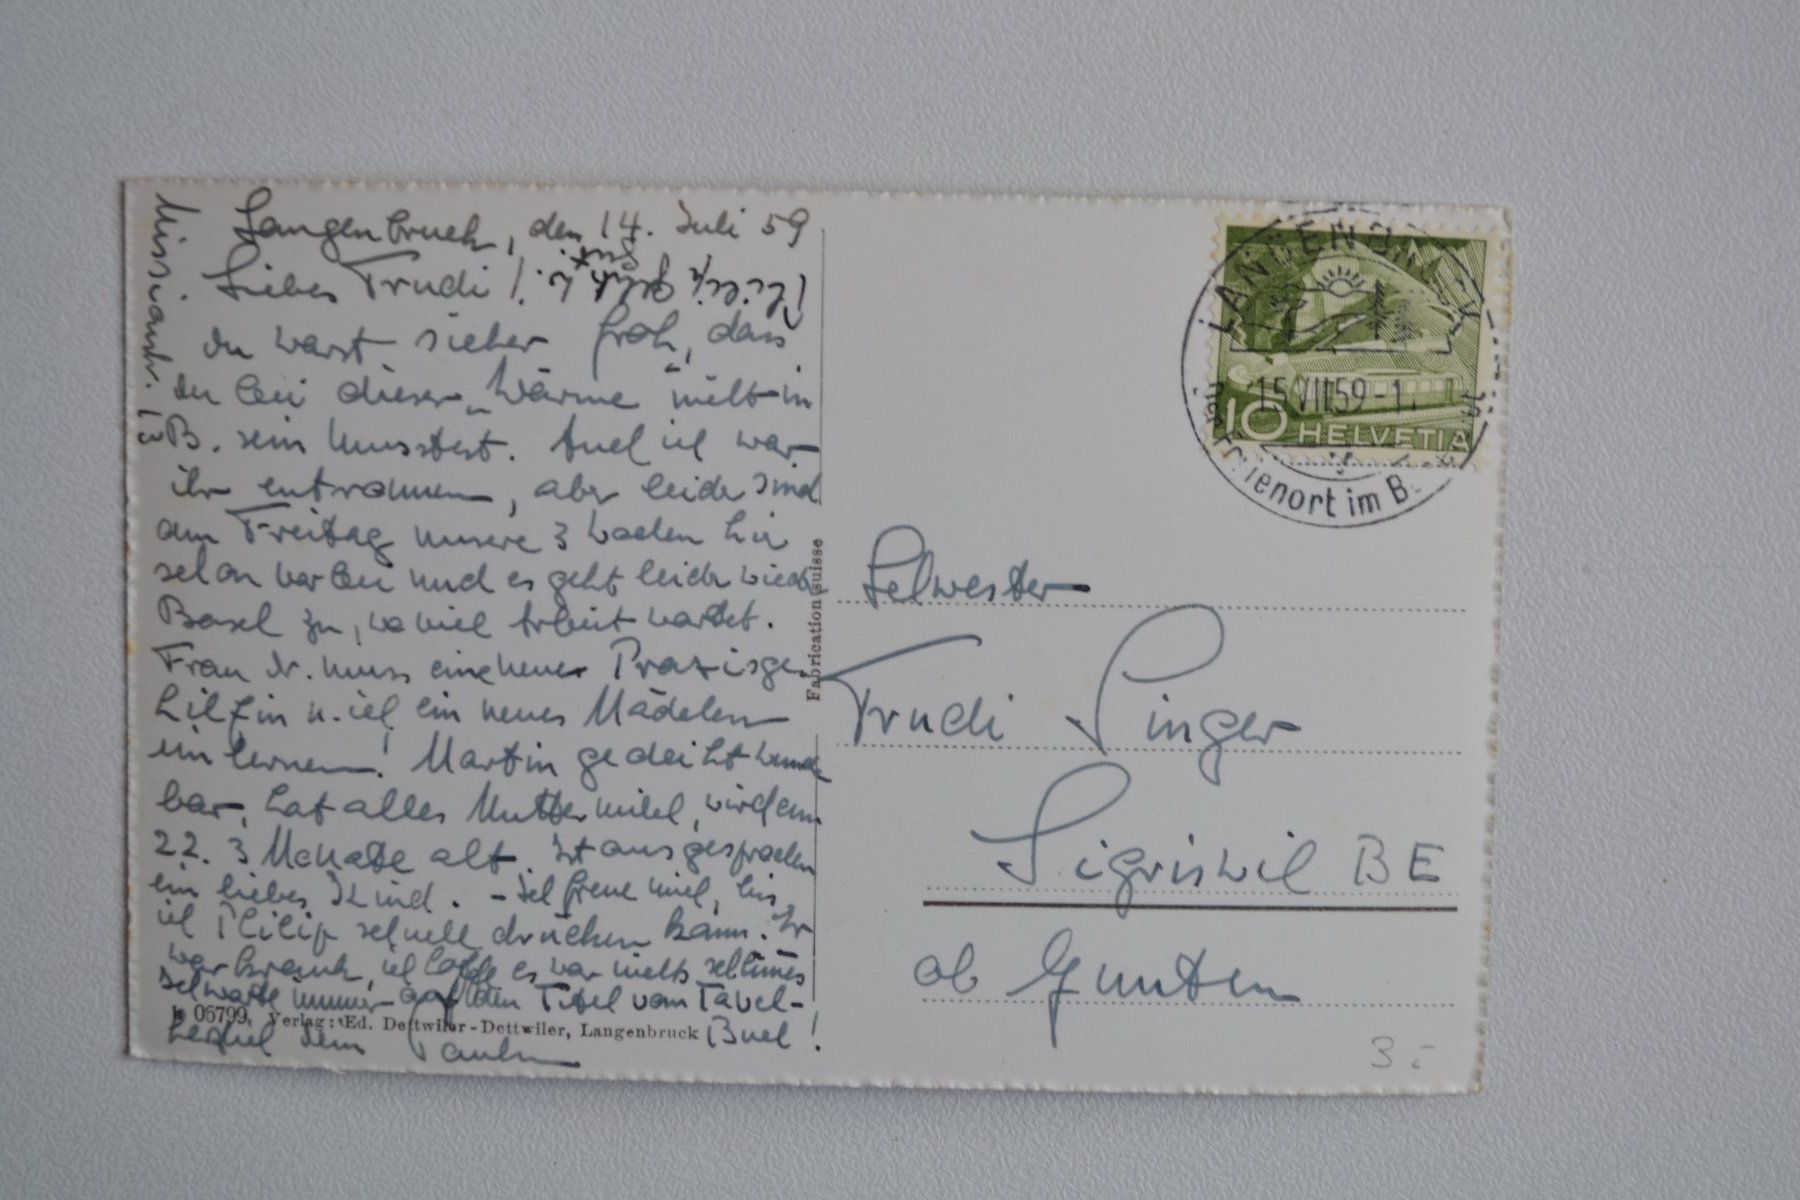 Missionsstr. 13
Langenbruck, den 14. Juli 59
Liebes Trudi!
du warst sicher froh, dass
du bei dieser „Wärme" nicht in
B. sein musstest. Auch ich war
ihr entronnen, aber leider sind
am Freitag unsere 3 Wochen hier
schon vorbei und es geht leider wieder
Basel zu, wo viel Arbeit wartet.
Frau Dr. muss eine neue Praxisge-
hilfin u. ich ein neues Mädchen
einlernen! Martin gedeiht wunder
bar, hat alles Muttermilch, wird am
22. 3 Monate alt. Ist ausgesprochen
ein liebes Kind. – Ich freue mich, bis
ich Philip schnell drücken kann. Er
war krank, ich hoffe es war nichts schlimmes
Ich warte immer auf den Titel vom Tavel-
Buch!
Herzlich dein Paulin
b 06799 Verlag: Ed. Dettwiler-Dettwiler, Langenbruck
Fabrication suisse
LANGENBRUCK
15.VII.59-1
Ferienort im B
10 HELVETIA
Schwester
Trudi Singer
Sigriswil BE
ob Gunten
3.-